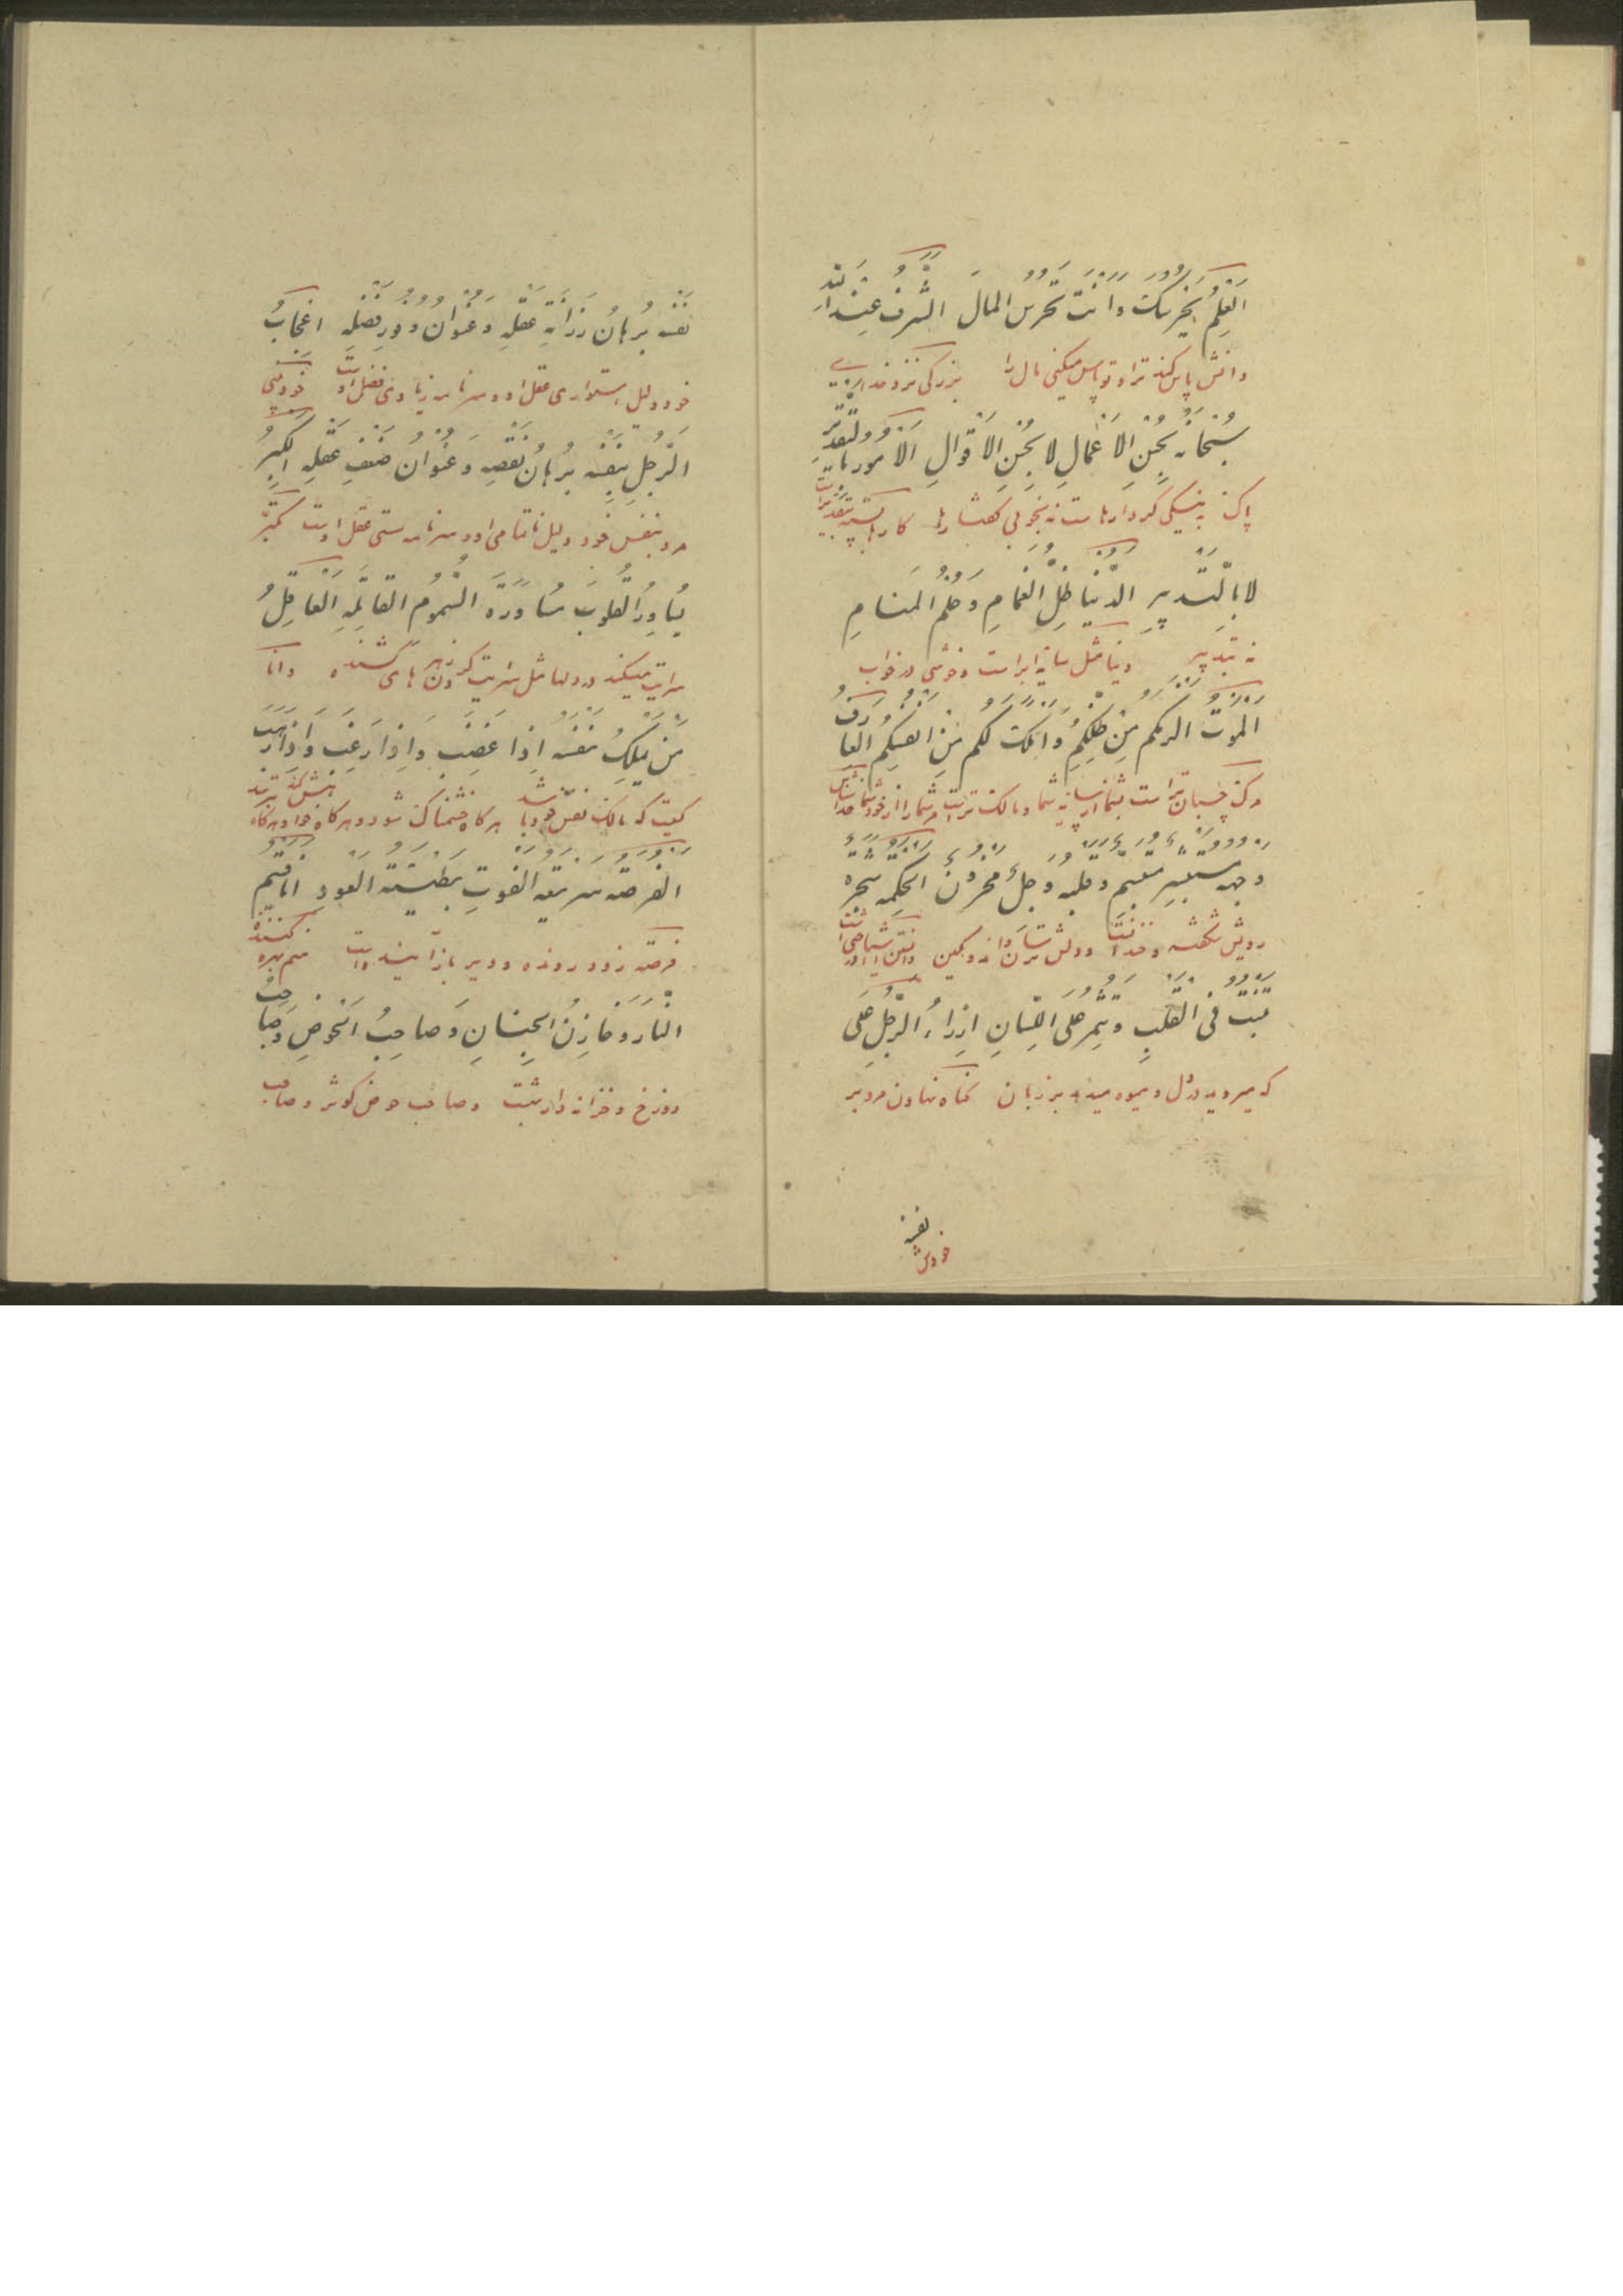 اَلْعِلْمُ یَحْرُسُکَ وَاَنْتَ تَحْرُسُ الْمالَ الشَّرَفُ عِنْدَ اللّهِ
دانش پاس کند ترا و تو پاس میکنی مال را بزرکی نزد خدای
سُبْحانَهُ بِحُسْنِ الْاَعْمالِ لا بِحُسْنِ الْاَقْوالِ اَلْاُمُورُ بِالتَّقْدیرِ
پاک به نیکی کردارهاست نه بخوبی کفتارها کارها بسته بتقدیراست
لا بِالتَّدْبیرِ اَلدُّنْیا ظِلُّ الْغَمامِ وَحُلْمُ الْمَنامِ
نه بتدبیر دنیا مثل سایه ابر است و خوشی در خواب
اَلْمَوْتُ اَلْزَمُ لَکُمْ مِنْ ظِلِّکُمْ وَاَمْلَکُ لَکُمْ مِنْ اَنْفُسِکُمْ اَلْعارِفُ
مرک چسبان تراست بشما از سایه شما و مالک تر است شما را از خود شما خداشناس
وَجْهُهُ مُسْتَبْشِرٌ مُتَبَسِّمٌ وَقَلْبُهُ وَجِلٌ مَحْزُونٌ اَلْحِکْمَةُ شَجَرَةٌ
رویش شکفته و خندان و دلش ترسان و اندوهکین
تَنْبُتُ فِی الْقَلْبِ وَتُثْمِرُ عَلَی اللِّسانِ اِزْراءُ الرَّجُلِ عَلی
که میروید در دل و میوه میدهد بر زبان کناه نهادن مرد بر
نفسه
خودش
نَفْسِهِ بُرْهانُ رَزانَةِ عَقْلِهِ وَعُنْوانُ وُفُورِ فَضْلِهِ اِعْجابُ
خود دلیل استواری عقل او و سرنامه زیادتی فضل اوست خودبینی
الرَّجُلِ بِنَفْسِهِ بُرْهانُ نَقْصِهِ وَعُنْوانُ ضَعْفِ عَقْلِهِ اَلْکِبْرُ
مرد بنفس خود دلیل ناتمامی او و سرنامه سستی عقل اوست تکبّر
یُساوِرُ الْقُلُوبَ مُساوَرَةَ السُّمُومِ الْقاتِلَةِ اَلْعاقِلُ
سرایت میکند در دلها مثل سرایت کردن زهرهای کشنده دانا
مَنْ یَمْلِکُ نَفْسَهُ اِذا غَضِبَ وَاِذا رَغِبَ وَاِذا رَهِبَ
کسیست که مالک نفس خود باشد هرکاه خشمناک شود و هرکاه خواهش کند و هرکاه بترسد
اَلْفُرْصَةُ سَریعَةُ الْفَوْتِ بَطیئَةُ الْعَوْدِ اَنَا قَسیمُ
فرصت زود رونده و دیر بازآینده است
النّارِ وَخازِنُ الْجِنانِ وَصاحِبُ الْحَوْضِ وَصاحِبُ
دوزخ و خزانه دار بهشت و صاحب حوض کوثر و صاحب